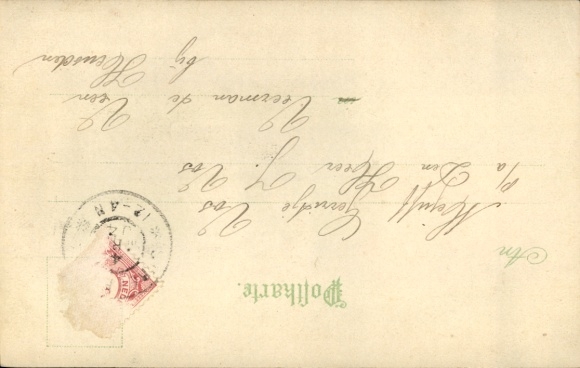 Postkarte.
An
Mejuff Gerritje Vos
p/a Den Heer J. Vos
Veerman te Veen
bij Heusden
12-AN
NED